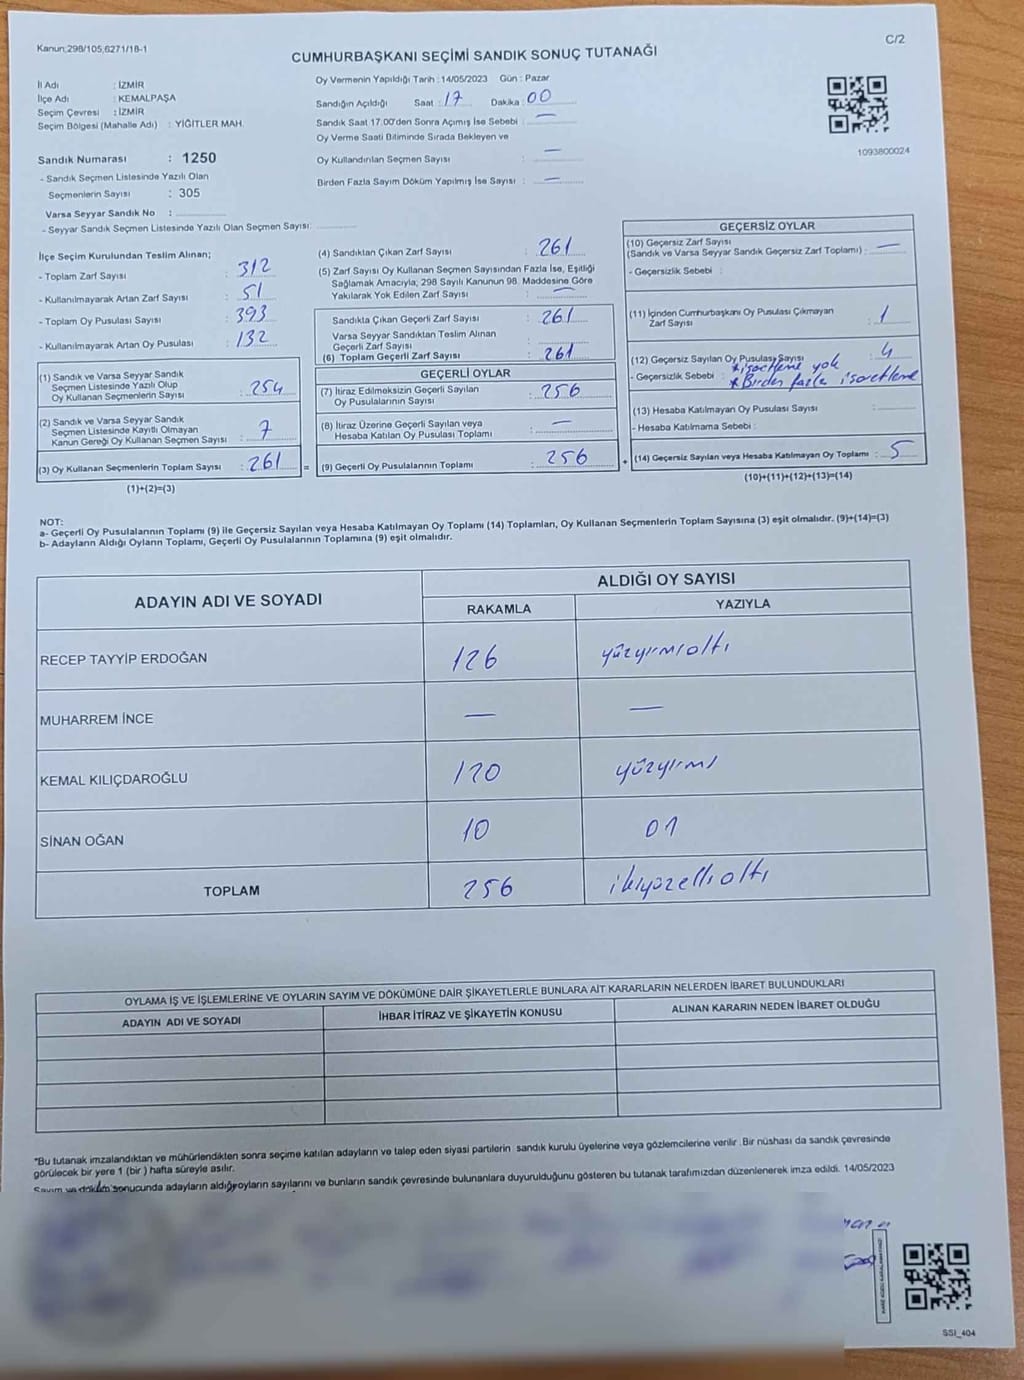 Kanun;298/105,6271/18-1
C/2
CUMHURBAŞKANI SEÇİMİ SANDIK SONUÇ TUTANAĞI
İl Adı : İZMİR
İlçe Adı : KEMALPAŞA
Seçim Çevresi : İZMİR
Seçim Bölgesi (Mahalle Adı) : YİĞİTLER MAH.
Sandık Numarası : 1250
- Sandık Seçmen Listesinde Yazılı Olan
Seçmenlerin Sayısı : 305
Varsa Seyyar Sandık No :
- Seyyar Sandık Seçmen Listesinde Yazılı Olan Seçmen Sayısı:
Oy Vermenin Yapıldığı Tarih : 14/05/2023 Gün : Pazar
Sandığın Açıldığı Saat : 17 Dakika : 00
Sandık Saat 17.00'den Sonra Açımış İse Sebebi : —
Oy Verme Saati Bitiminde Sırada Bekleyen ve
Oy Kullandırılan Seçmen Sayısı : —
Birden Fazla Sayım Döküm Yapılmış İse Sayısı : —
1093800024
İlçe Seçim Kurulundan Teslim Alınan;
- Toplam Zarf Sayısı : 312
- Kullanılmayarak Artan Zarf Sayısı : 51
- Toplam Oy Pusulası Sayısı : 393
- Kullanılmayarak Artan Oy Pusulası : 132
(1) Sandık ve Varsa Seyyar Sandık
Seçmen Listesinde Yazılı Olup
Oy Kullanan Seçmenlerin Sayısı : 254
(2) Sandık ve Varsa Seyyar Sandık
Seçmen Listesinde Kayıtlı Olmayan
Kanun Gereği Oy Kullanan Seçmen Sayısı : 7
(3) Oy Kullanan Seçmenlerin Toplam Sayısı : 261 =
(1)+(2)=(3)
(4) Sandıktan Çıkan Zarf Sayısı : 261
(5) Zarf Sayısı Oy Kullanan Seçmen Sayısından Fazla İse, Eşitliği
Sağlamak Amacıyla; 298 Sayılı Kanunun 98. Maddesine Göre
Yakılarak Yok Edilen Zarf Sayısı : —
Sandıkta Çıkan Geçerli Zarf Sayısı : 261
Varsa Seyyar Sandıktan Teslim Alınan
Geçerli Zarf Sayısı :
(6) Toplam Geçerli Zarf Sayısı : 261
GEÇERLİ OYLAR
(7) İtiraz Edilmeksizin Geçerli Sayılan
Oy Pusulalarının Sayısı : 256
(8) İtiraz Üzerine Geçerli Sayılan veya
Hesaba Katılan Oy Pusulası Toplamı : —
(9) Geçerli Oy Pusulalarının Toplamı : 256 +
GEÇERSİZ OYLAR
(10) Geçersiz Zarf Sayısı
(Sandık ve Varsa Seyyar Sandık Geçersiz Zarf Toplamı) : —
- Geçersizlik Sebebi :
(11) İçinden Cumhurbaşkanı Oy Pusulası Çıkmayan
Zarf Sayısı : 1
(12) Geçersiz Sayılan Oy Pusulası Sayısı : 4
- Geçersizlik Sebebi : * işaretleme yok
* Birden fazla işaretleme
(13) Hesaba Katılmayan Oy Pusulası Sayısı :
- Hesaba Katılmama Sebebi :
(14) Geçersiz Sayılan veya Hesaba Katılmayan Oy Toplamı : 5
(10)+(11)+(12)+(13)=(14)
NOT:
a- Geçerli Oy Pusulalarının Toplamı (9) ile Geçersiz Sayılan veya Hesaba Katılmayan Oy Toplamı (14) Toplamları, Oy Kullanan Seçmenlerin Toplam Sayısına (3) eşit olmalıdır. (9)+(14)=(3)
b- Adayların Aldığı Oyların Toplamı, Geçerli Oy Pusulalarının Toplamına (9) eşit olmalıdır.
ADAYIN ADI VE SOYADI
ALDIĞI OY SAYISI
RAKAMLA YAZIYLA
RECEP TAYYİP ERDOĞAN 126 yüzyirmialtı
MUHARREM İNCE — —
KEMAL KILIÇDAROĞLU 120 yüzyirmi
SİNAN OĞAN 10 01
TOPLAM 256 ikiyüzellialtı
OYLAMA İŞ VE İŞLEMLERİNE VE OYLARIN SAYIM VE DÖKÜMÜNE DAİR ŞİKAYETLERLE BUNLARA AİT KARARLARIN NELERDEN İBARET BULUNDUKLARI
ADAYIN ADI VE SOYADI İHBAR İTİRAZ VE ŞİKAYETİN KONUSU ALINAN KARARIN NEDEN İBARET OLDUĞU
*Bu tutanak imzalandıktan ve mühürlendikten sonra seçime katılan adayların ve talep eden siyasi partilerin sandık kurulu üyelerine veya gözlemcilerine verilir .Bir nüshası da sandık çevresinde
görülecek bir yere 1 (bir ) hafta süreyle asılır.
Sayım ve döküm sonucunda adayların aldığı oyların sayılarını ve bunların sandık çevresinde bulunanlara duyurulduğunu gösteren bu tutanak tarafımızdan düzenlenerek imza edildi. 14/05/2023
SSI_404